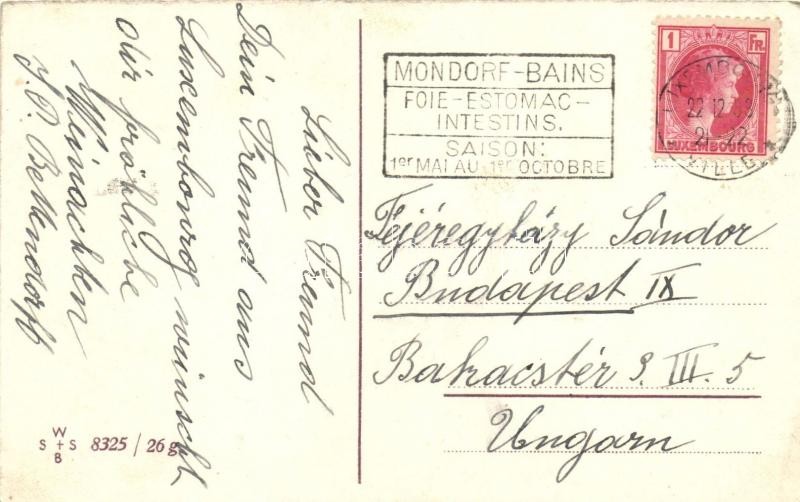 Lieber Freund
Dein Freund aus
Luxembourg wünscht
dir fröhliche
Weinachten
J.P. Bettendorff
MONDORF-BAINS
FOIE-ESTOMAC-
INTESTINS.
SAISON:
1er MAI AU 1er OCTOBRE
1 FR.
LUXEMBOURG
LUXEMBOURG
22 12
21-22
VILLE
Fejéregyházy Sándor
Budapest IX
Bakacstér 3. III. 5
Ungarn
W
S + S
B
8325 / 26 g